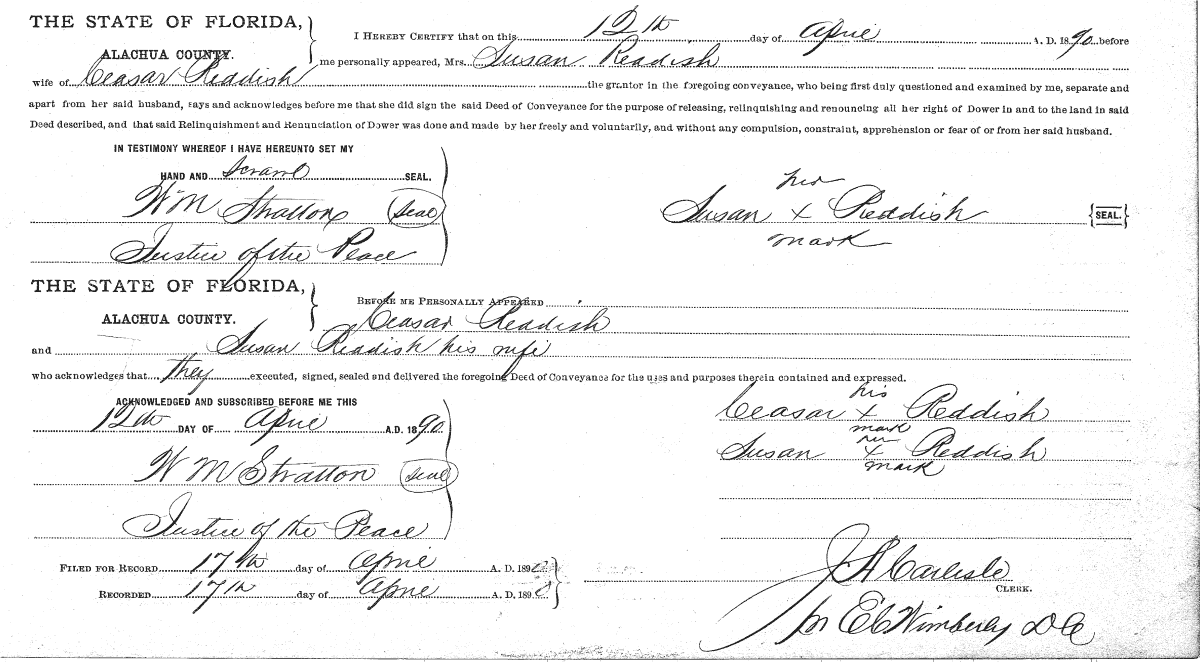 THE STATE OF FLORIDA,
ALACHUA COUNTY.
I HEREBY CERTIFY that on this 12th day of April A. D. 1890 before
me personally appeared, Mrs. Susan Reddish
wife of Ceasar Reddish the grantor in the foregoing conveyance, who being first duly questioned and examined by me, separate and
apart from her said husband, says and acknowledges before me that she did sign the said Deed of Conveyance for the purpose of releasing, relinquishing and renouncing all her right of Dower in and to the land in said
Deed described, and that said Relinquishment and Renunciation of Dower was done and made by her freely and voluntarily, and without any compulsion, constraint, apprehension or fear of or from her said husband.
IN TESTIMONY WHEREOF I HAVE HEREUNTO SET MY
HAND AND Scrawl SEAL.
Wm Stratton (Seal)
Justice of the Peace
her
Susan x Reddish {SEAL.}
mark
THE STATE OF FLORIDA,
ALACHUA COUNTY.
BEFORE ME PERSONALLY APPEARED
Ceasar Reddish
and Susan Reddish his wife
who acknowledges that they executed, signed, sealed and delivered the foregoing Deed of Conveyance for the uses and purposes therein contained and expressed.
ACKNOWLEDGED AND SUBSCRIBED BEFORE ME THIS
12th DAY OF April A.D. 1890
W M Stratton (Seal)
Justice of the Peace
his
Ceasar x Reddish
mark
her
Susan x Reddish
mark
FILED FOR RECORD 17th day of April A. D. 1890
RECORDED 17th day of April A. D. 1890
J A Carlisle
CLERK.
pr E C Wimberly D C